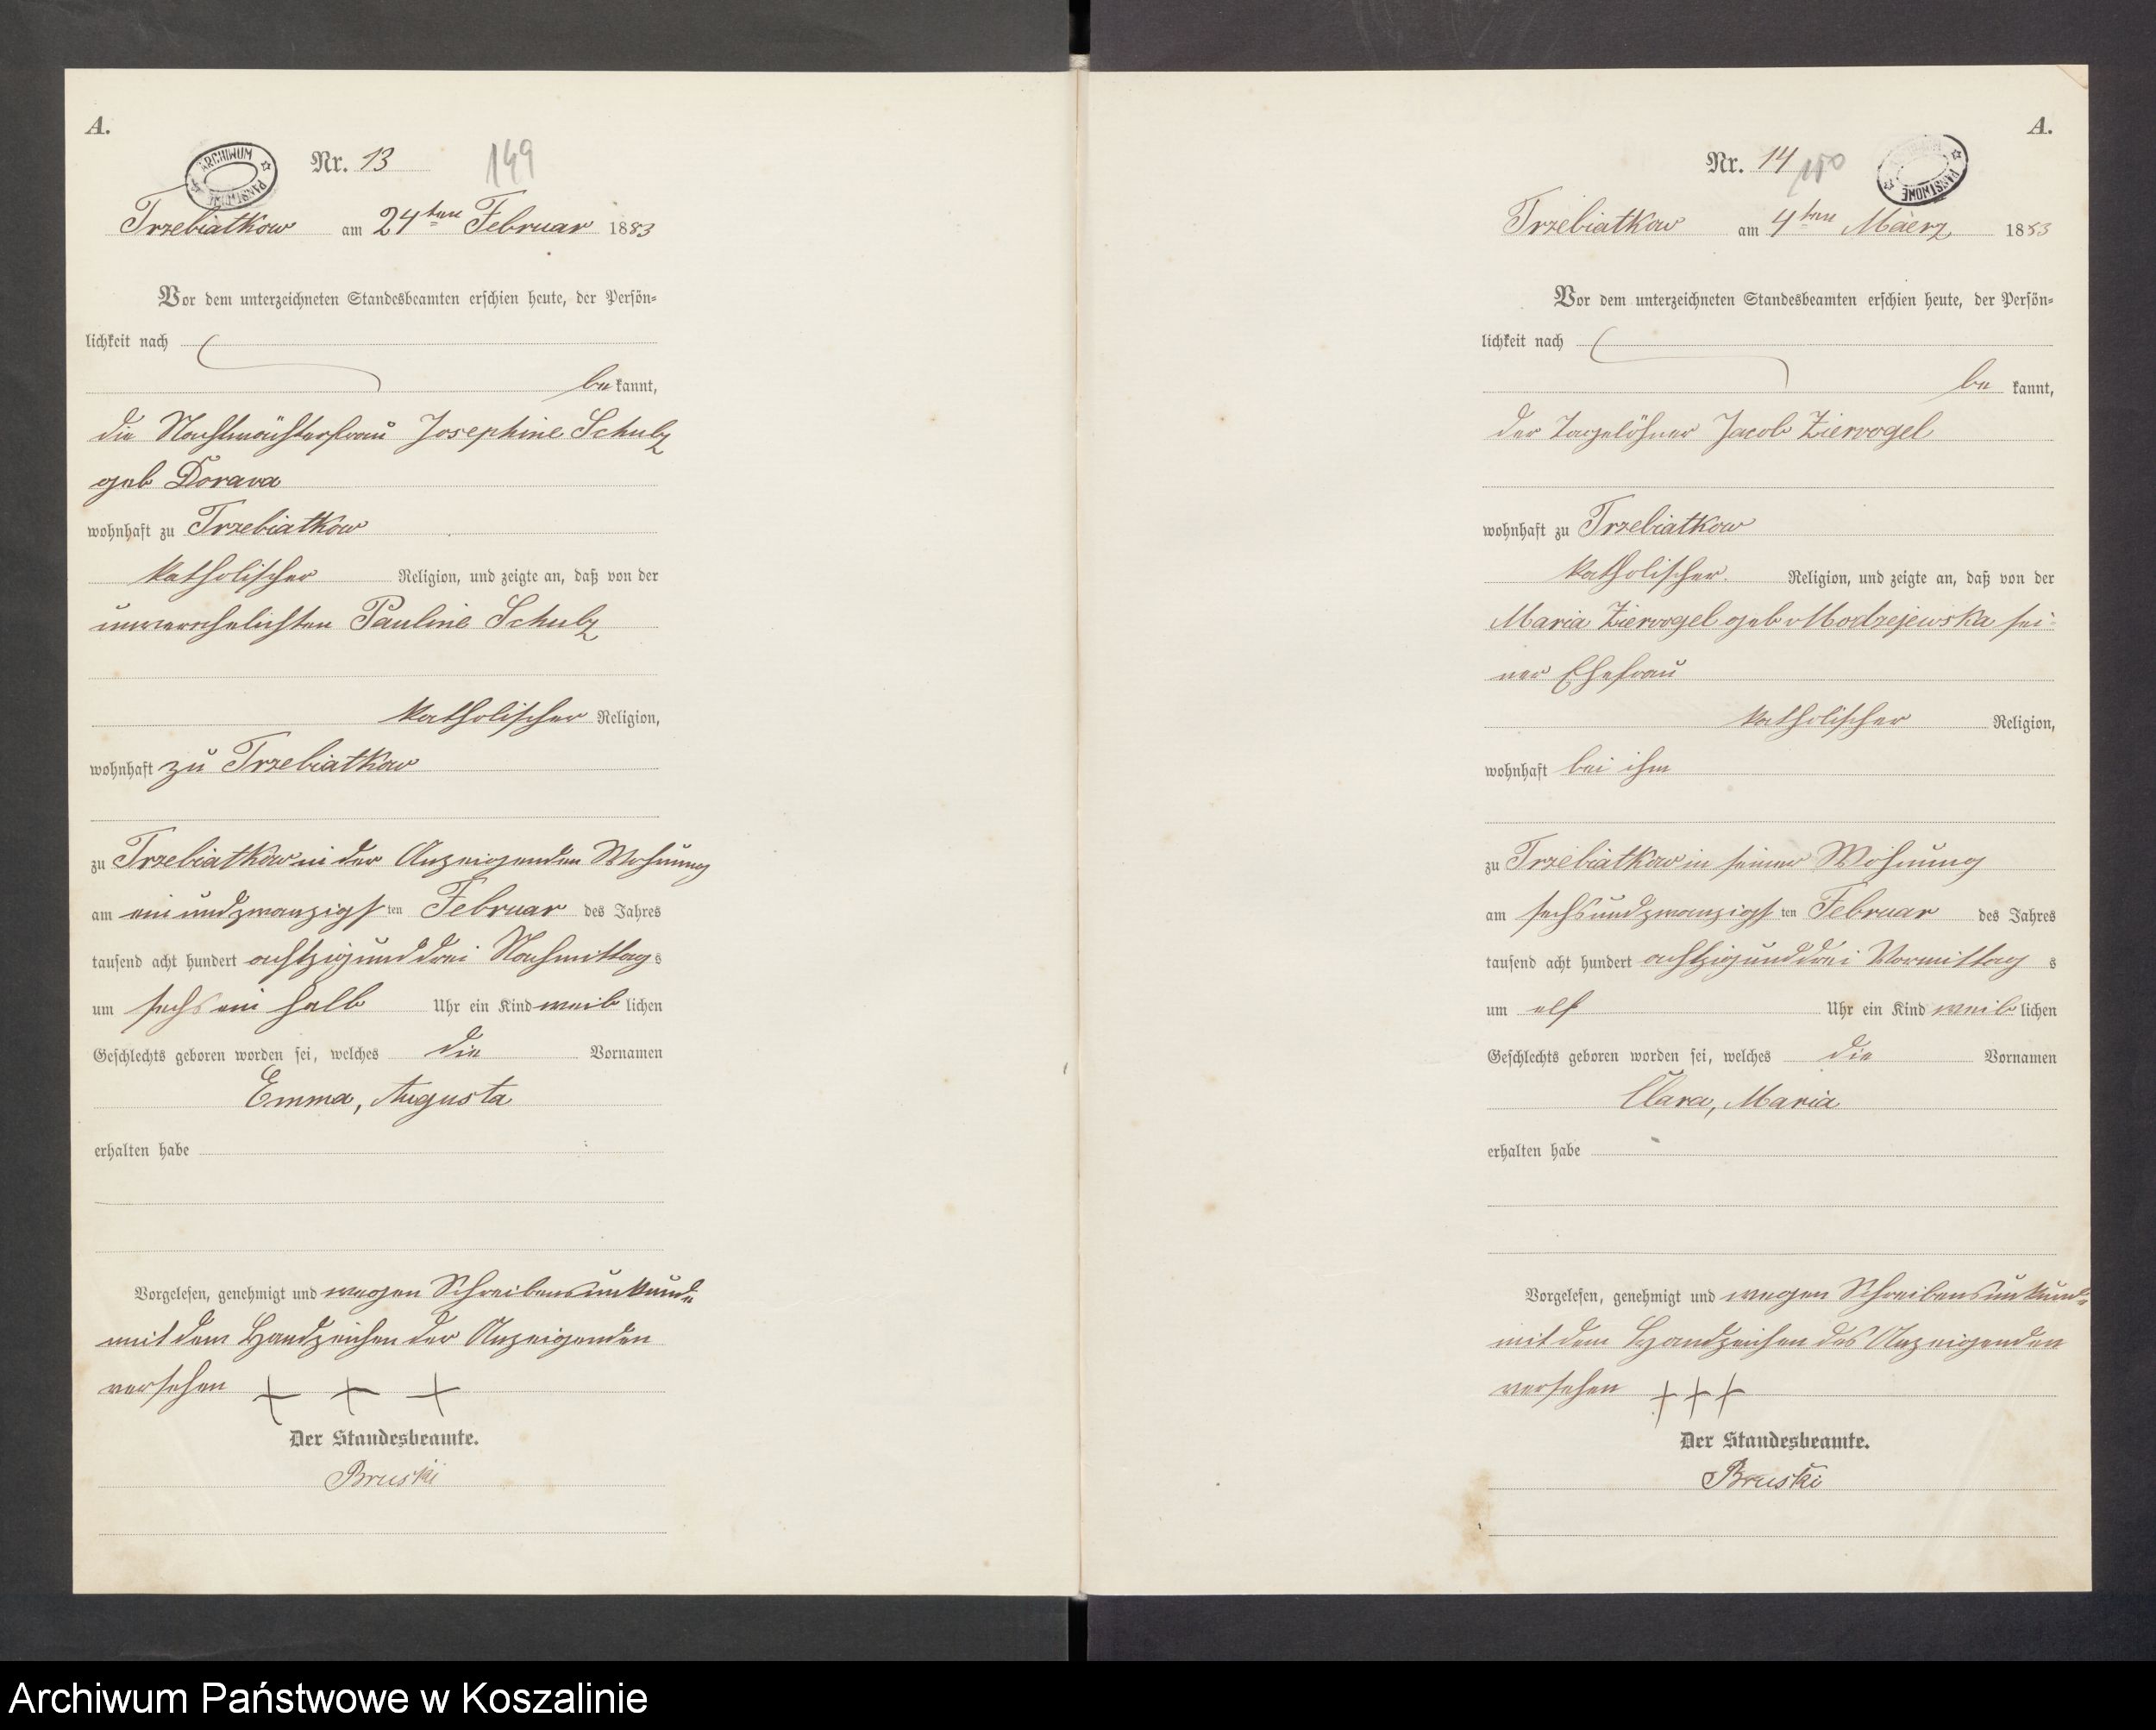 A.
ARCHIWUM PAŃSTWOWE
Nr. 13
149
Trzebiatkow am 24ten Februar 1883
Vor dem unterzeichneten Standesbeamten erschien heute, der Persön-
lichkeit nach
bekannt,
die Nachtwächterfrau Josephine Schulz
geb Dorava
wohnhaft zu Trzebiatkow
katholischer Religion, und zeigte an, daß von der
unverehelichten Pauline Schulz
katholischer Religion,
wohnhaft zu Trzebiatkow
zu Trzebiatkow in der Anzeigenden Wohnung
am ein und zwanzigsten Februar des Jahres
tausend acht hundert achtzig und drei Nachmittags
um sechs ein halb Uhr ein Kind weiblichen
Geschlechts geboren worden sei, welches die Vornamen
Emma, Augusta
erhalten habe
Vorgelesen, genehmigt und wegen Schreibensunkunde
mit dem Handzeichen der Anzeigenden
versehen + + +
Der Standesbeamte.
Bruski
A.
Nr. 14
150
PAŃSTWOWE
Trzebiatkow am 4ten Maerz 1883
Vor dem unterzeichneten Standesbeamten erschien heute, der Persön-
lichkeit nach
bekannt,
der Tagelöhner Jacob Ziervogel
wohnhaft zu Trzebiatkow
katholischer Religion, und zeigte an, daß von der
Maria Ziervogel geb Modrzejewska sei-
ner Ehefrau
katholischer Religion,
wohnhaft bei ihm
zu Trzebiatkow in seiner Wohnung
am sechs und zwanzigsten Februar des Jahres
tausend acht hundert achtzig und drei Vormittags
um elf Uhr ein Kind weiblichen
Geschlechts geboren worden sei, welches die Vornamen
Clara, Maria
erhalten habe
Vorgelesen, genehmigt und wegen Schreibensunkunde
mit dem Handzeichen des Anzeigenden
versehen + + +
Der Standesbeamte.
Bruski
Archiwum Państwowe w Koszalinie